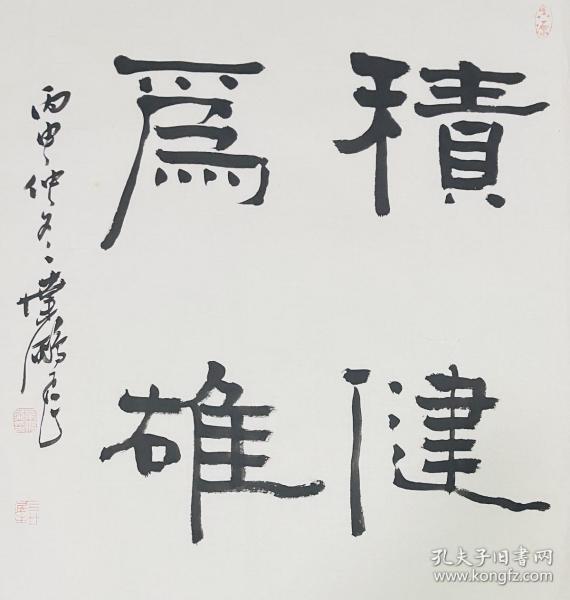 積健
為雄
丙申仲冬
孔夫子旧书网
www.kongfz.com